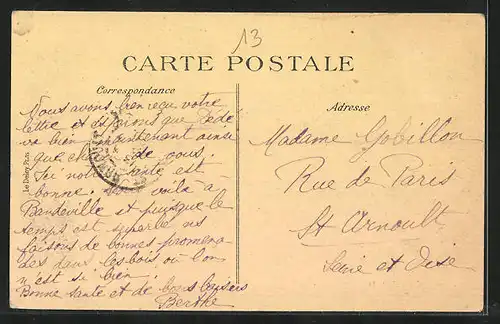 13
CARTE POSTALE
Correspondance
Nous avons bien reçu votre
lettre et que Dédé
va bien maintenant ainsi
que de vous.
Ici notre santé est
bonne. voilà à
Bandeville et puisque le
temps est superbe ns
faisons de bonnes promena-
des dans les bois où l'on
n'est si bien.
Bonne santé et de bons baisers
Berthe
Adresse
Madame Gobillon
Rue de Paris
St Arnoult
Seine et Oise